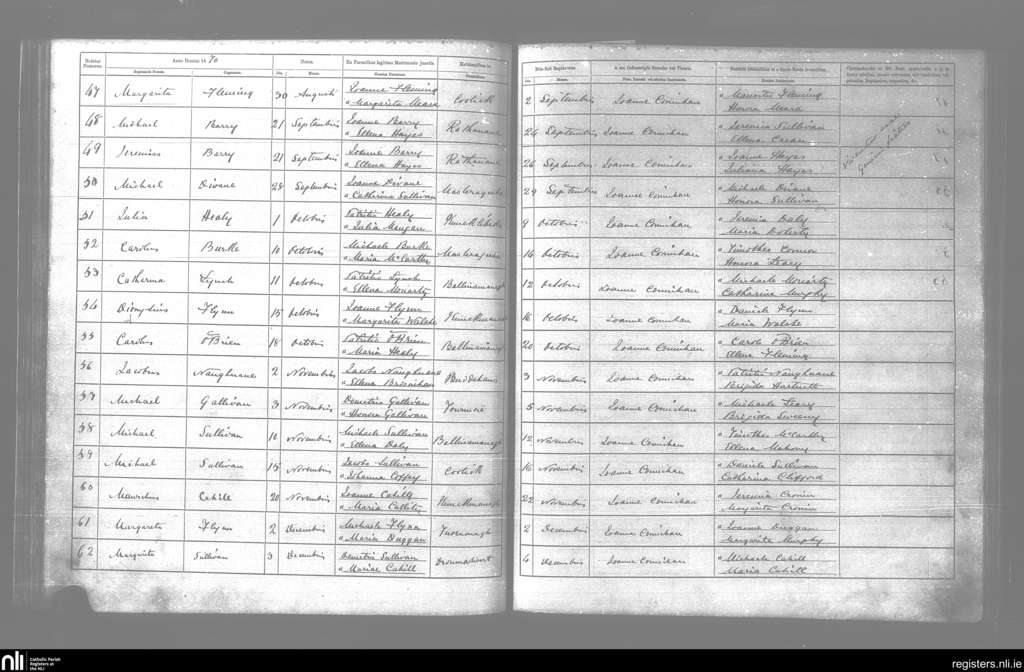 Numerus Anno Domini 1870 Natus Ex Parentibus legitimo Matrimonio junctis Residentibus in
Baptismale Nomen. Cognomen. Die. Mense. Nomina Parentum.
47 Margarita Fleming 30 Augusti Joanne Fleming
& Margarita Meara Coolick
48 Michael Barry 21 Septembris Joanne Barry
& Ellena Hayes Rathanane
49 Jeremias Barry 21 Septembris Joanne Barry
& Ellena Hayes Rathanane
50 Michael Divane 28 Septembris Joanne Divane
& Catherina Sullivan
51 Julia Healy 1 Octobris Patritio Healy
& Julia Mangan
52 Carolus Burke 10 Octobris Michaele Burke
& Maria McCarthy
53 Catherina Lynch 11 Octobris Patritio Lynch
& Ellena Moriarty
54 Dionysius Flynn 15 Octobris Joanne Flynn
& Margarita Walshe
55 Carolus O'Brien 18 Octobris Patritio O'Brien
& Maria Healy
56 Jacobus Naughnane 2 Novembris Jacobo Naughnane
& Ellena Brosnahan
57 Michael Gallivan 3 Novembris Demetrio Gallivan
& Honora Gallivan
58 Michael Sullivan 10 Novembris Michaele Sullivan
& Ellena Daly
59 Michael Sullivan 15 Novembris Jacobo Sullivan
& Johanna Coffey Coolick
60 Mauritius Cahill 20 Novembris Joanne Cahill
& Maria
61 Margareta Flynn 2 Decembris Michaele Flynn
& Maria Duggan
62 Margarita Sullivan 3 Decembris Demetrio Sullivan
& Mariae Cahill
Die. Mense.
2 Septembris Joanne Comihan & Mauritio Fleming
Honora Meara
24 Septembris Joanne Comihan & Jeremia Sullivan
Ellena Crean
26 Septembris Joanne Comihan & Joanne Hayes
Juliana Hayes
29 Septembris Joanne Comihan & Michaele Divane
Honora Sullivan
9 Octobris Joanne Comihan & Jeremia Daly
Maria Doherty
16 Octobris Joanne Comihan & Timotheo Connor
Honora Leary
12 Octobris Joanne Comihan & Michaele Moriarty
Catharina Murphy
16 Octobris Joanne Comihan & Daniele Flynn
Maria Walshe
20 Octobris Joanne Comihan & Carolo O'Brien
Ellena Fleming
3 Novembris Joanne Comihan & Patritio Naughnane
Brigida Hartnett
5 Novembris Joanne Comihan & Michaele Leary
Brigida Sweeny
12 Novembris Joanne Comihan & Timotheo McCarthy
Ellena Mahony
16 Novembris Joanne Comihan & Daniele Sullivan
Catharina Clifford
22 Novembris Joanne Comihan & Jeremia Cronin
Margarita Cronin
2 Decembris Joanne Comihan & Joanne Duggan
Margarita Murphy
4 Decembris Joanne Comihan & Michaele Cahill
Maria Cahill
nli Catholic Parish
Registers at
the NLI
registers.nli.ie